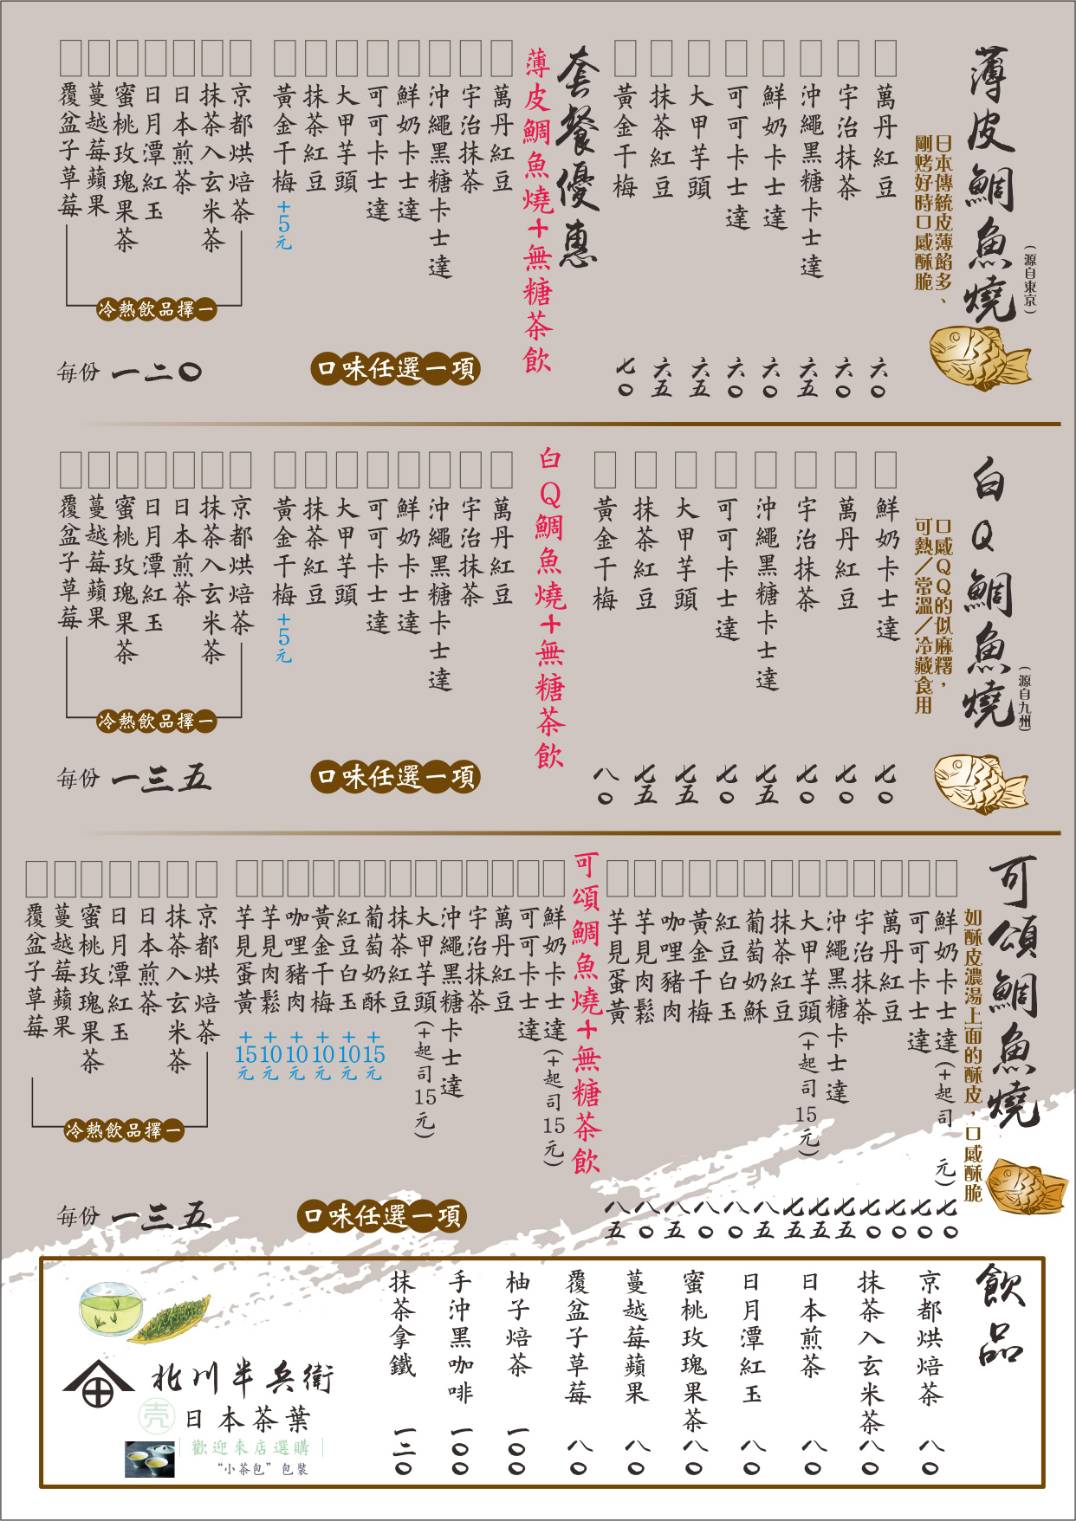 薄皮鯛魚燒
(源自東京)
日本傳統皮薄餡多、
剛烤好時口感酥脆
萬丹紅豆 六〇
宇治抹茶 六〇
沖繩黑糖卡士達 六五
鮮奶卡士達 六〇
可可卡士達 六〇
大甲芋頭 六五
抹茶紅豆 六五
黃金干梅 七〇
套餐優惠
薄皮鯛魚燒+無糖茶飲
萬丹紅豆
宇治抹茶
沖繩黑糖卡士達
鮮奶卡士達
可可卡士達
大甲芋頭
抹茶紅豆
黃金干梅+5元
口味任選一項
京都烘焙茶
抹茶入玄米茶
日本煎茶
日月潭紅玉
蜜桃玫瑰果茶
蔓越莓蘋果
覆盆子草莓
冷熱飲品擇一
每份 一二〇
白Q鯛魚燒
(源自九州)
口感QQ的似麻糬，
可熱/常溫/冷藏食用
鮮奶卡士達 七〇
萬丹紅豆 七〇
宇治抹茶 七〇
沖繩黑糖卡士達 七五
可可卡士達 七〇
大甲芋頭 七五
抹茶紅豆 七五
黃金干梅 八〇
白Q鯛魚燒+無糖茶飲
萬丹紅豆
宇治抹茶
沖繩黑糖卡士達
鮮奶卡士達
可可卡士達
大甲芋頭
抹茶紅豆
黃金干梅+5元
口味任選一項
京都烘焙茶
抹茶入玄米茶
日本煎茶
日月潭紅玉
蜜桃玫瑰果茶
蔓越莓蘋果
覆盆子草莓
冷熱飲品擇一
每份 一三五
可頌鯛魚燒
如酥皮濃湯上面的酥皮，口感酥脆
鮮奶卡士達(+起司 元) 七〇
可可卡士達 七〇
萬丹紅豆 七〇
宇治抹茶 七〇
沖繩黑糖卡士達 七五
大甲芋頭(+起司15元) 七五
抹茶紅豆 七五
葡萄奶酥 八五
紅豆白玉 八〇
黃金干梅 八〇
咖哩豬肉 八五
芋見肉鬆 八〇
芋見蛋黃 八五
可頌鯛魚燒+無糖茶飲
鮮奶卡士達(+起司15元)
可可卡士達
萬丹紅豆
宇治抹茶
沖繩黑糖卡士達
大甲芋頭(+起司15元)
抹茶紅豆
葡萄奶酥+15元
紅豆白玉+10元
黃金干梅+10元
咖哩豬肉+10元
芋見肉鬆+10元
芋見蛋黃+15元
口味任選一項
京都烘焙茶
抹茶入玄米茶
日本煎茶
日月潭紅玉
蜜桃玫瑰果茶
蔓越莓蘋果
覆盆子草莓
冷熱飲品擇一
每份 一三五
飲品
京都烘焙茶 八〇
抹茶入玄米茶 八〇
日本煎茶 八〇
日月潭紅玉 八〇
蜜桃玫瑰果茶 八〇
蔓越莓蘋果 八〇
覆盆子草莓 八〇
柚子焙茶 一〇〇
手沖黑咖啡 一〇〇
抹茶拿鐵 一二〇
北川半兵衛
売 日本茶葉
歡迎來店選購
“小茶包”包裝